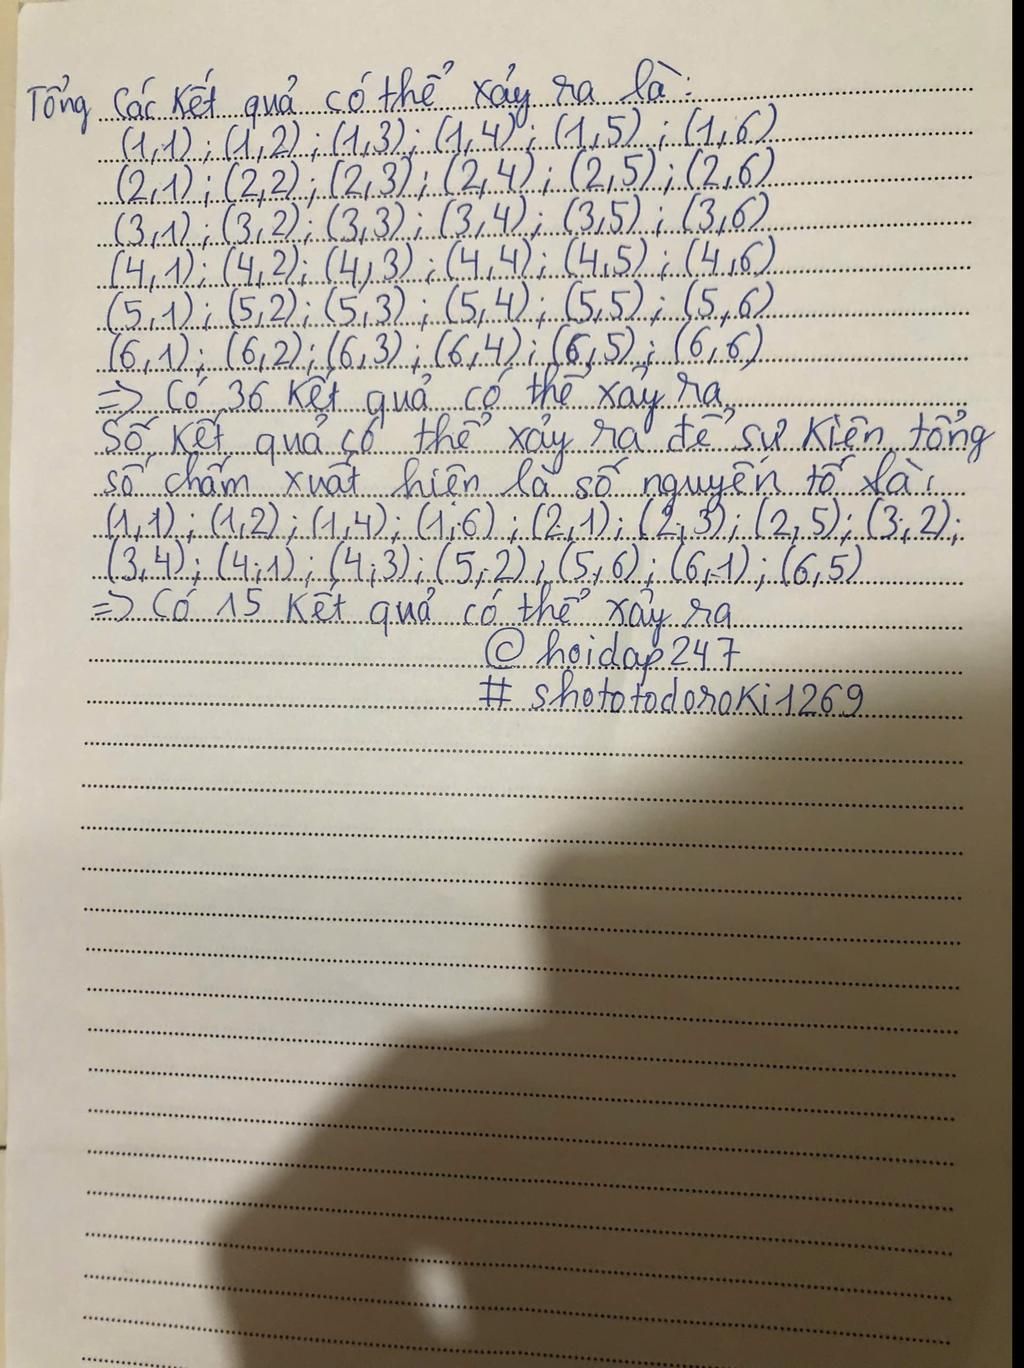 Tổng các kết quả có thể xảy ra là:
(1,1); (1,2); (1,3); (1,4); (1,5); (1,6)
(2,1); (2,2); (2,3); (2,4); (2,5); (2,6)
(3,1); (3,2); (3,3); (3,4); (3,5); (3,6)
(4,1); (4,2); (4,3); (4,4); (4,5); (4,6)
(5,1); (5,2); (5,3); (5,4); (5,5); (5,6)
(6,1); (6,2); (6,3); (6,4); (6,5); (6,6)
=> Có 36 kết quả có thể xảy ra
Số kết quả có thể xảy ra để sự kiện tổng
số chấm xuất hiện là số nguyên tố là:
(1,1); (1,2); (1,4); (1,6); (2,1); (2,3); (2,5); (3,2);
(3,4); (4,1); (4,3); (5,2); (5,6); (6,1); (6,5)
=> Có 15 kết quả có thể xảy ra
@hoidap247
# shototodoroki1269